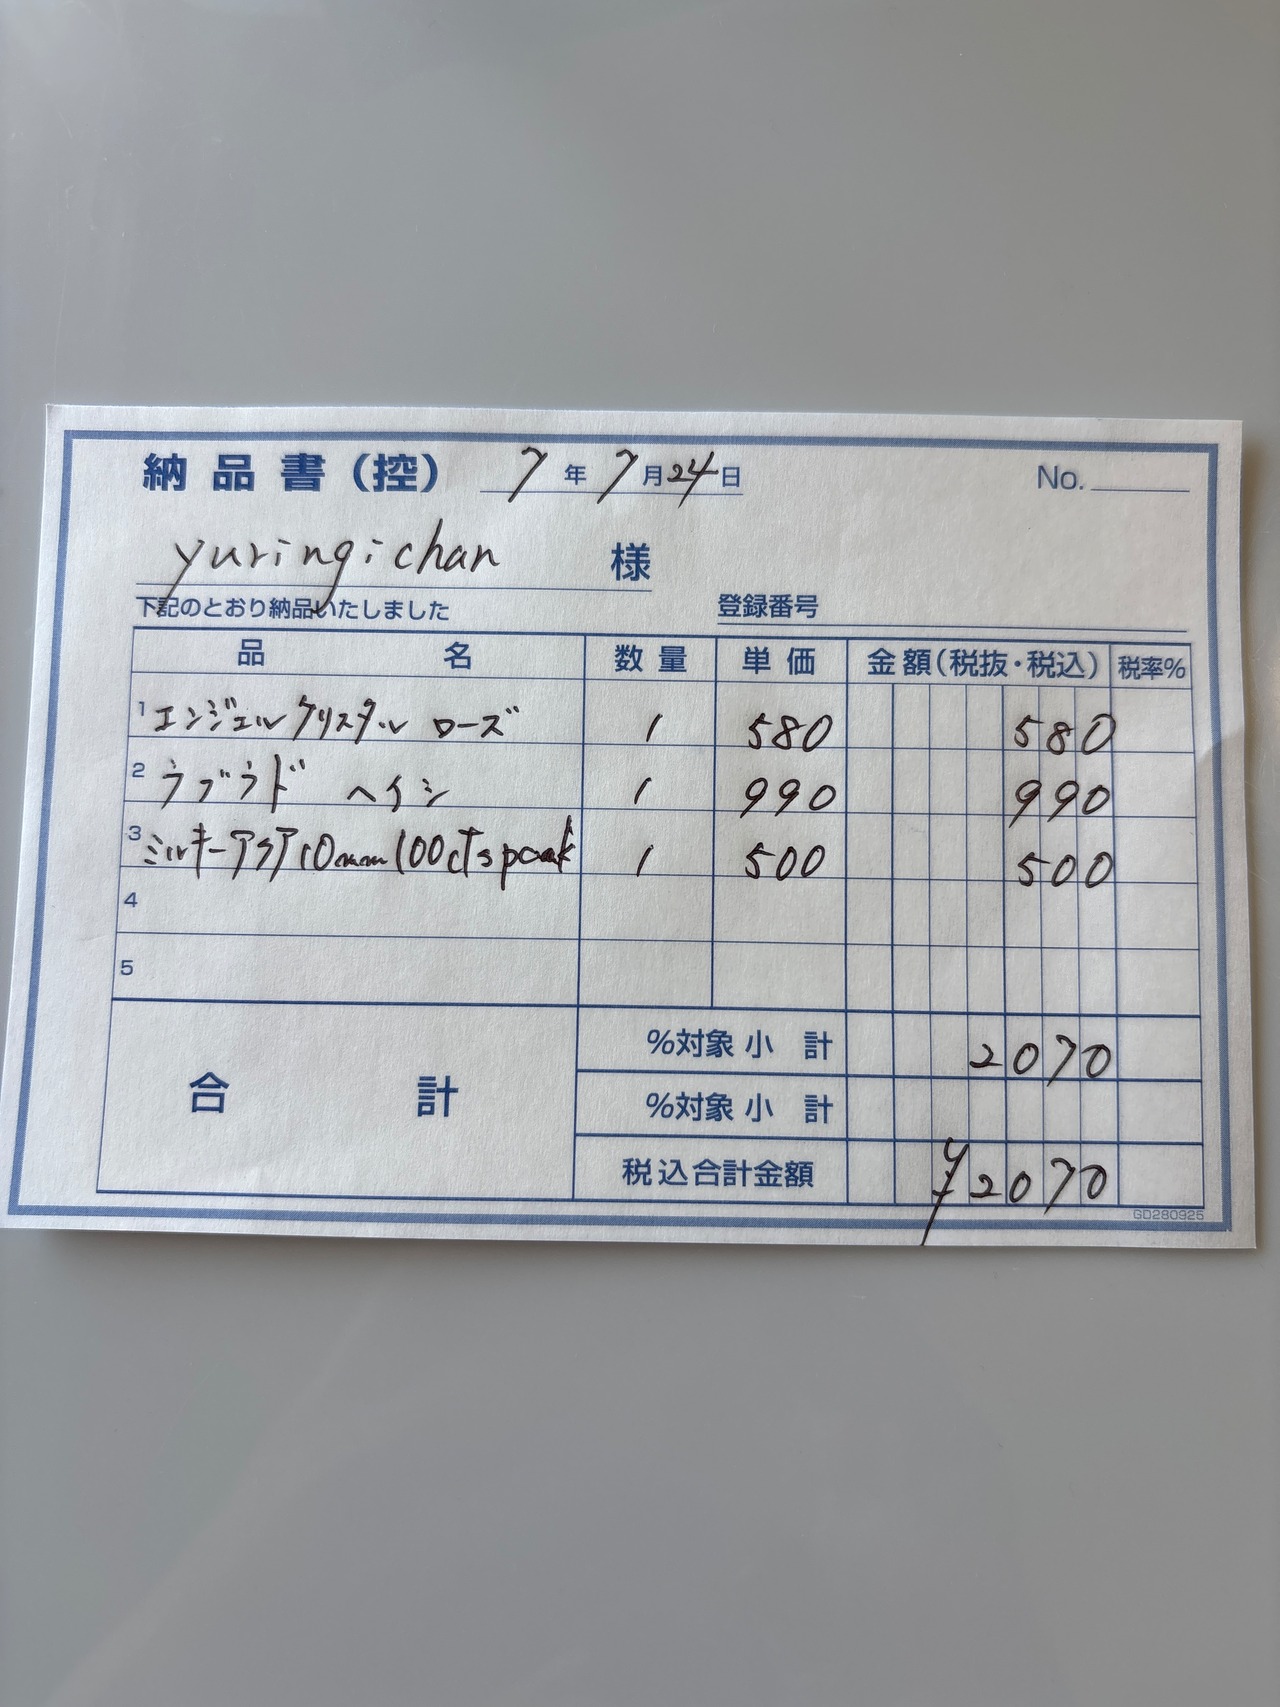 納品書(控) 7年7月24日 No.
yuringichan 様
下記のとおり納品いたしました 登録番号
品名 数量 単価 金額(税抜・税込) 税率%
1 エンジェルクリスタル ローズ 1 580 580
2 ラブラド ヘイシ 1 990 990
3 ミルキーアクア10mm100cts 1 500 500
4
5
合計 %対象小計 2070
%対象小計
税込合計金額 ¥2070
GD280925